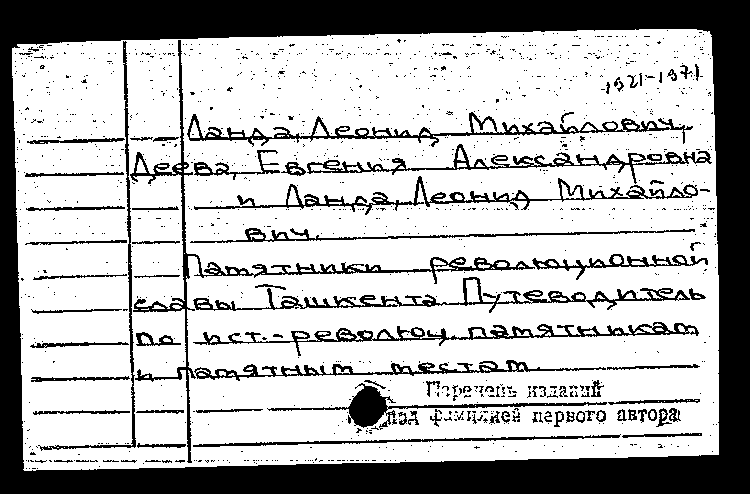 1921-1971
Ланда, Леонид Михайлович,
Деева, Евгения Александровна
и Ланда, Леонид Михайло-
вич.
Памятники революционной
славы Ташкента. Путеводитель
по ист.-революц. памятникам
и памятным местам.
Перечень изданий
под фамилией первого автора